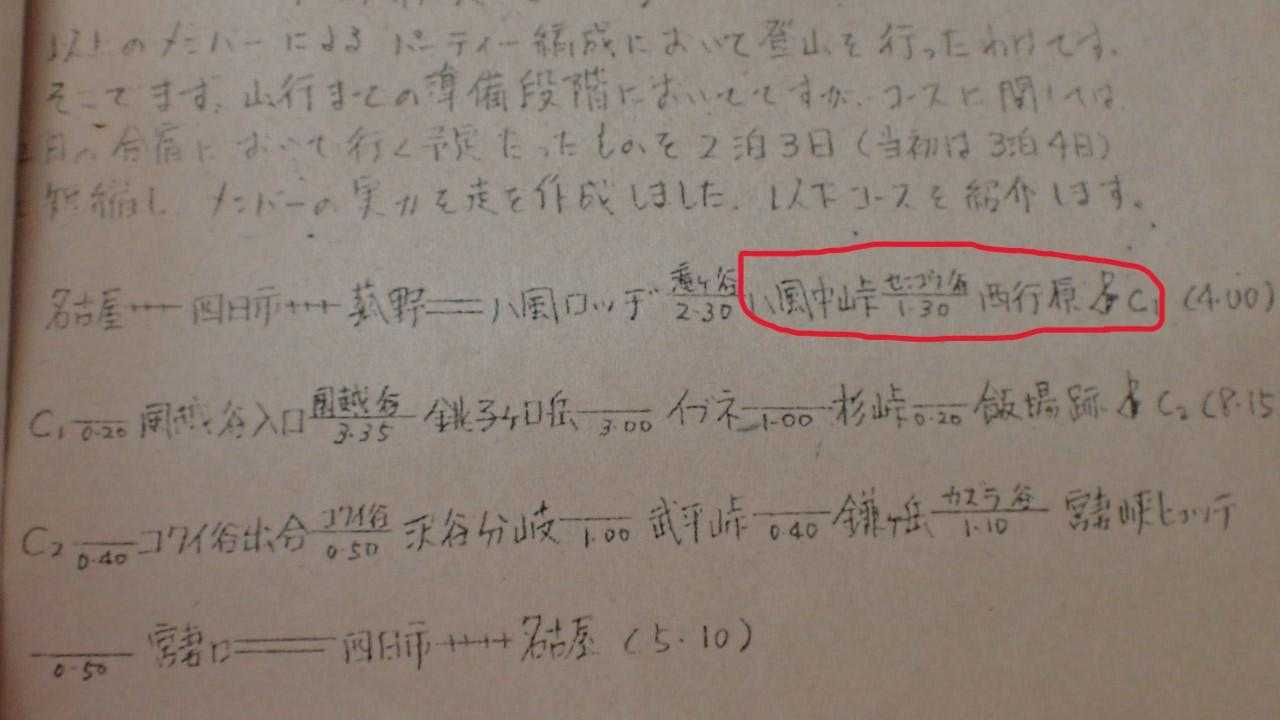 以上のメンバーによるパーティー編成において登山を行ったわけです。
そこでまず、山行までの準備段階においてですが、コースに関しては
合宿において行く予定だったものを2泊3日(当初は3泊4日)
短縮し、メンバーの実力を を作成しました。以下コースを紹介します。
名古屋 四日市 菰野 八風ロッヂ 2.30 八風中峠 センゴウ谷 1.30 西行原 C1 (4.00)
C1 0.20 谷入口 3.35 銚子ヶ口岳 3.00 イブネ 1.00 杉峠 0.20 飯場跡 C2 (8.15
C2 0.40 コワイ谷出合 コワイ谷 0.50 沢谷分岐 1.00 武平峠 0.40 鎌ヶ岳 カズラ谷 1.10 宮妻峡ヒュッテ
0.50 宮妻口 四日市 名古屋 (5.10)